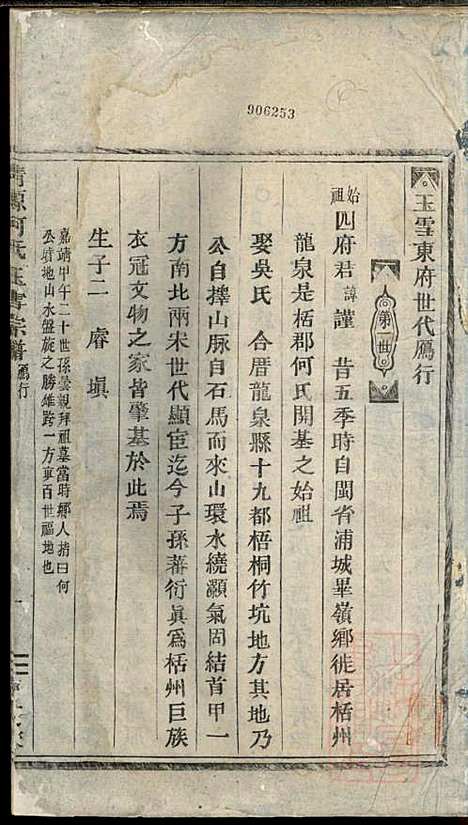 906253
玉雪東府世代鴈行
第一世
始祖四府君諱謹 昔五季時自閩省浦城畢嶺鄉徙居栝州
龍泉是栝郡何氏開基之始祖
娶吳氏 合厝龍泉縣十九都梧桐竹坑地方其地乃
公自擇山脉自石馬而來山環水繞灝氣固結首甲一
方南北兩宋世代顯宦迄今子孫蕃衍眞爲栝州巨族
衣冠文物之家皆肇基於此焉
生子二 睿 塤
嘉靖甲午二十世孫曇親拜祖墓當時鄉人指曰何
公府地山水盤旋之勝雄跨一方眞百世福地也
何氏玉雪宗譜 鴈行